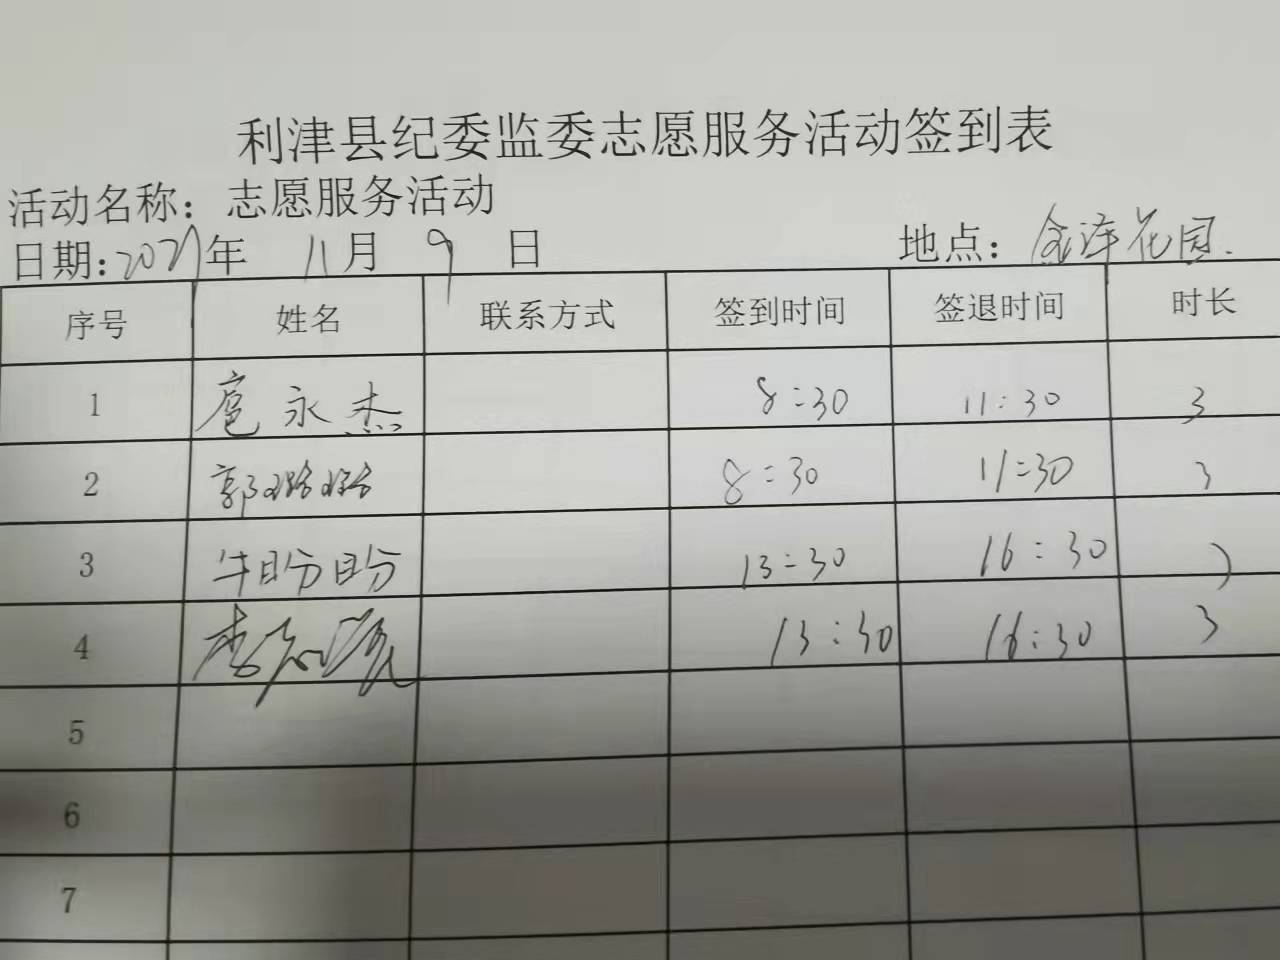 利津县纪委监委志愿服务活动签到表
活动名称：志愿服务活动
日期：202 年 11月 9 日 地点：金泽花园.
序号 姓名 联系方式 签到时间 签退时间 时长
1 扈永杰 8:30 11:30 3
2 郭璐璐 8:30 11:30 3
3 牛盼盼 13:30 16:30 3
4 李 13:30 16:30 3
5
6
7